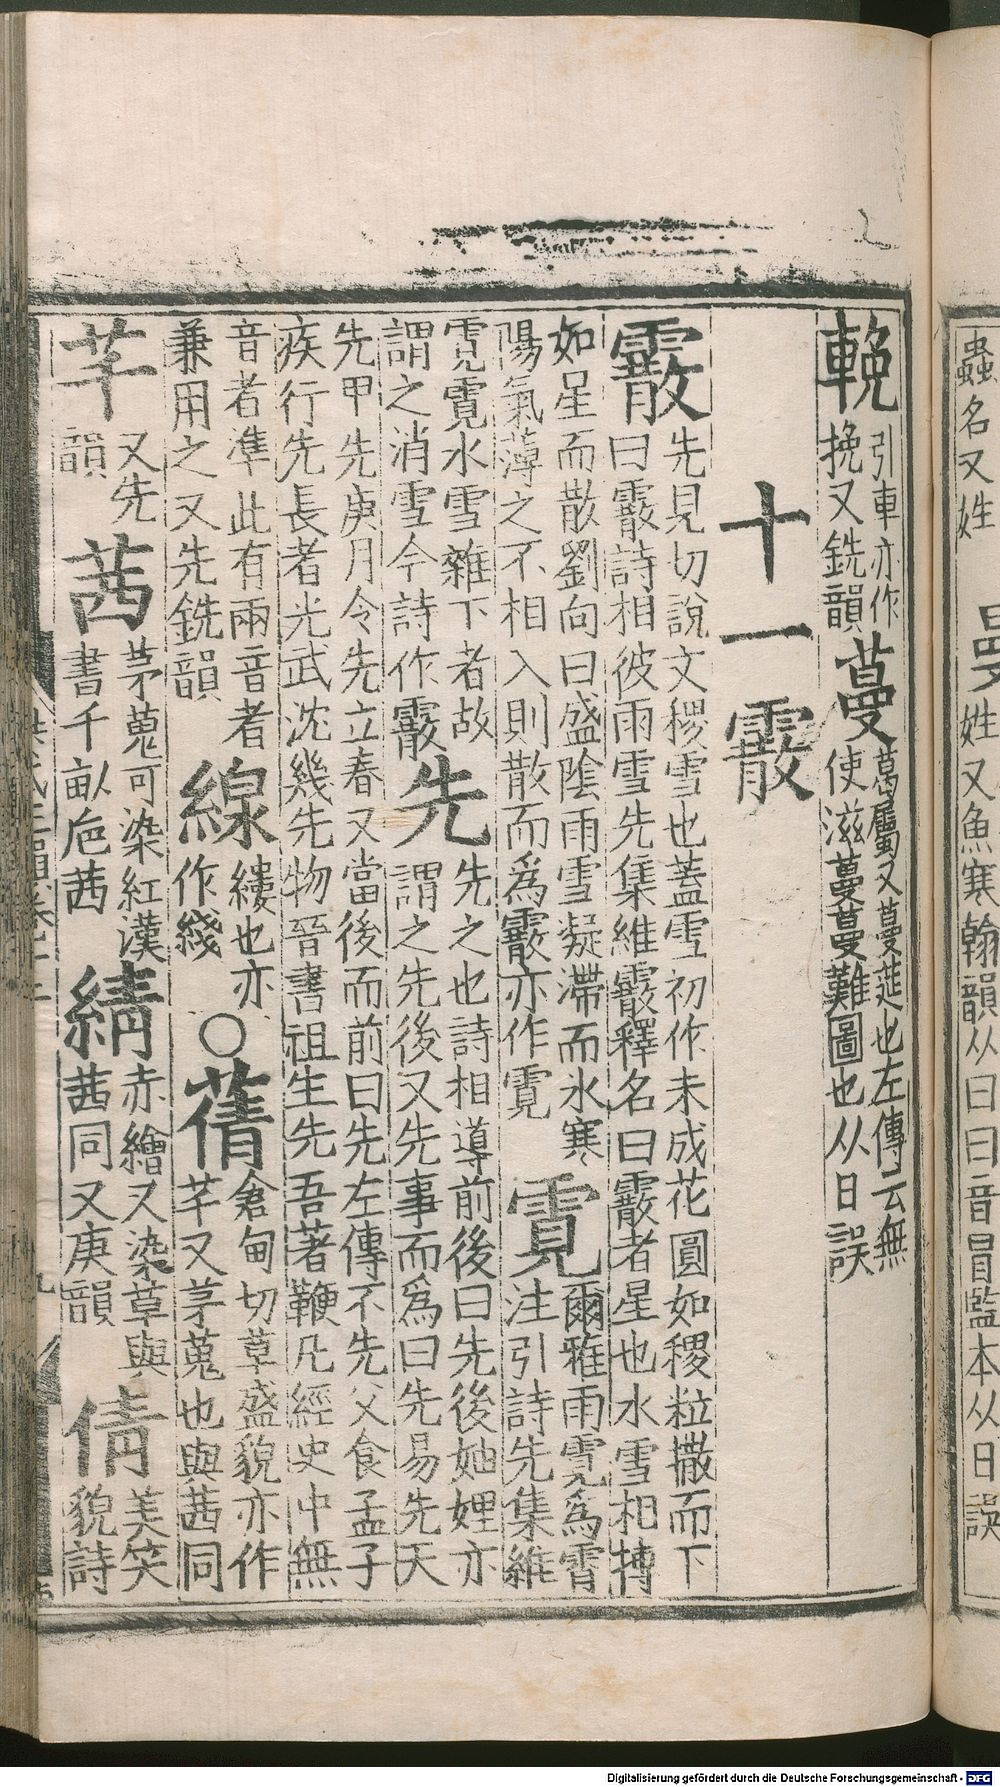 蟲名又姓 曼 姓又魚寒翰韻从曰曰音冒監本从日誤
輓 引車亦作
挽又銑韻 蔓 葛屬又蔓莚也左傳云無
使滋蔓蔓難圖也从日誤
十一霰
霰 先見切說文稷雪也蓋雪初作未成花圓如稷粒撒而下
曰霰詩相彼雨雪先集維霰釋名曰霰者星也水雪相摶
如星而散劉向曰盛陰雨雪凝滯而氷寒
陽氣薄之不相入則散而爲霰亦作䨘 䨘 爾雅雨䨘爲霄
注引詩先集維
䨘䨘水雪雜下者故
謂之消雪今詩作霰 先 先之也詩相導前後曰先後妯娌亦
謂之先後又先事而爲曰先易先天
先甲先庚月令先立春又當後而前曰先左傳不先父食孟子
疾行先長者光武沈幾先物晉書祖生先吾著鞭凡經史中無
音者準此有兩音者
兼用之又先銑韻 線 縷也亦
作綫 ○ 蒨 倉甸切草盛貌亦作
芊又茅蒐也與茜同
芊 又先
韻 茜 茅蒐可染紅漢
書千畝巵茜 綪 赤繒又染草與
茜同又庚韻 倩 美笑
貌詩
Digitalisierung gefördert durch die Deutsche Forschungsgemeinschaft - DFG